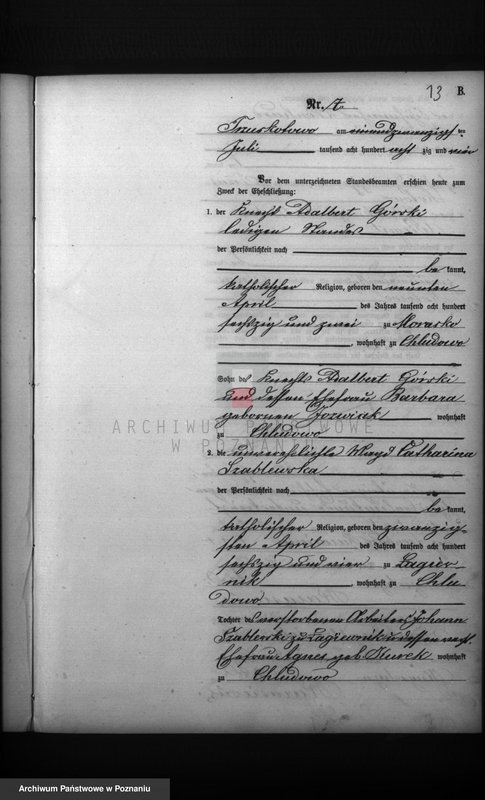 13 B.
Nr. 7.
Truskotowo am einundzwanzigsten
Juli tausend acht hundert acht zig und vier
Vor dem unterzeichneten Standesbeamten erschien heute zum
Zweck der Eheschließung:
1. der Knecht Adalbert Górski
ledigen Standes
der Persönlichkeit nach
be kannt,
katholischer Religion, geboren den neunten
April des Jahres tausend acht hundert
sechszig und zwei zu Morasko
, wohnhaft zu Chludowo
Sohn des Knechts Adalbert Górski
und dessen Ehefrau Barbara
gebornen Jozwiak wohnhaft
zu Chludowo
ARCHIWUM PAŃSTWOWE
W POZNANIU
2. die unverehelichte Magd Catharina
Szablewska
der Persönlichkeit nach
be kannt,
katholischer Religion, geboren den zwanzig-
sten April des Jahres tausend acht hundert
sechszig und vier zu Lagiew
nik , wohnhaft zu Chlu
dowo
Tochter des verstorbenen Arbeiters Johann
Szablewski zu Lagiewnik u dessen verst.
Ehefrau Agnes geb. Kurek wohnhaft
zu Chludowo
Archiwum Państwowe w Poznaniu